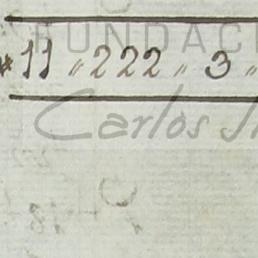 FUNDACI
*11 〃 222 〃 3 〃
Carlos